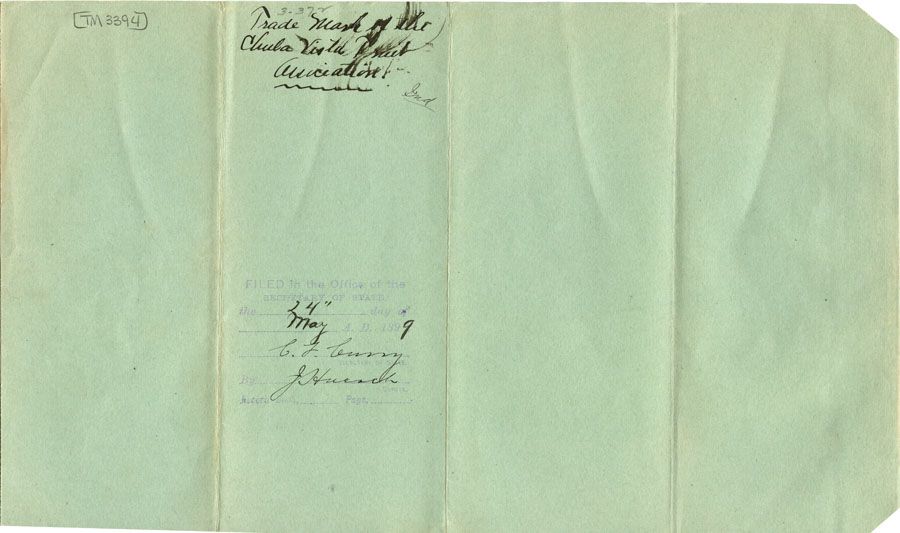 [TM 3394]
3-372
Trade Mark of the
Chula Vista Fruit
Association.
End
FILED in the Office of the
SECRETARY OF STATE
the 24" day of
May A. D. 1899
C. F. Curry
By J Hoesch
Record Book Page